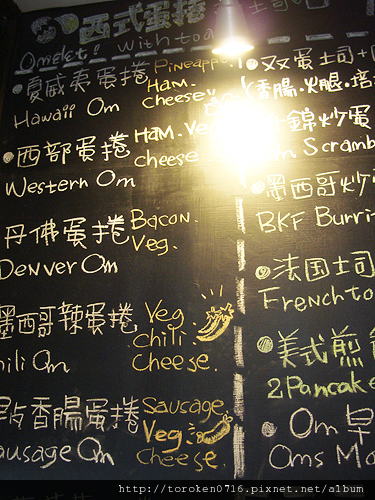 西式蛋捲
Omelet! with toa
夏威夷蛋捲 Pineapple.
Hawaii Om Ham.
cheese
西部蛋捲 Ham. Ve
Western Om cheese
丹佛蛋捲 Bacon.
Denver Om Veg.
墨西哥辣蛋捲 Veg
hili Om chili
Cheese.
香腸蛋捲 Sausage
ausage Om Veg
Cheese
双蛋土司+
香腸.火腿.培
錦炒蛋
Scramb
墨西哥炒
BKF Burri
法国土司
French to
美式煎
2 Pancake
Om早
Oms Mo
http://toroken0716.pixnet.net/album